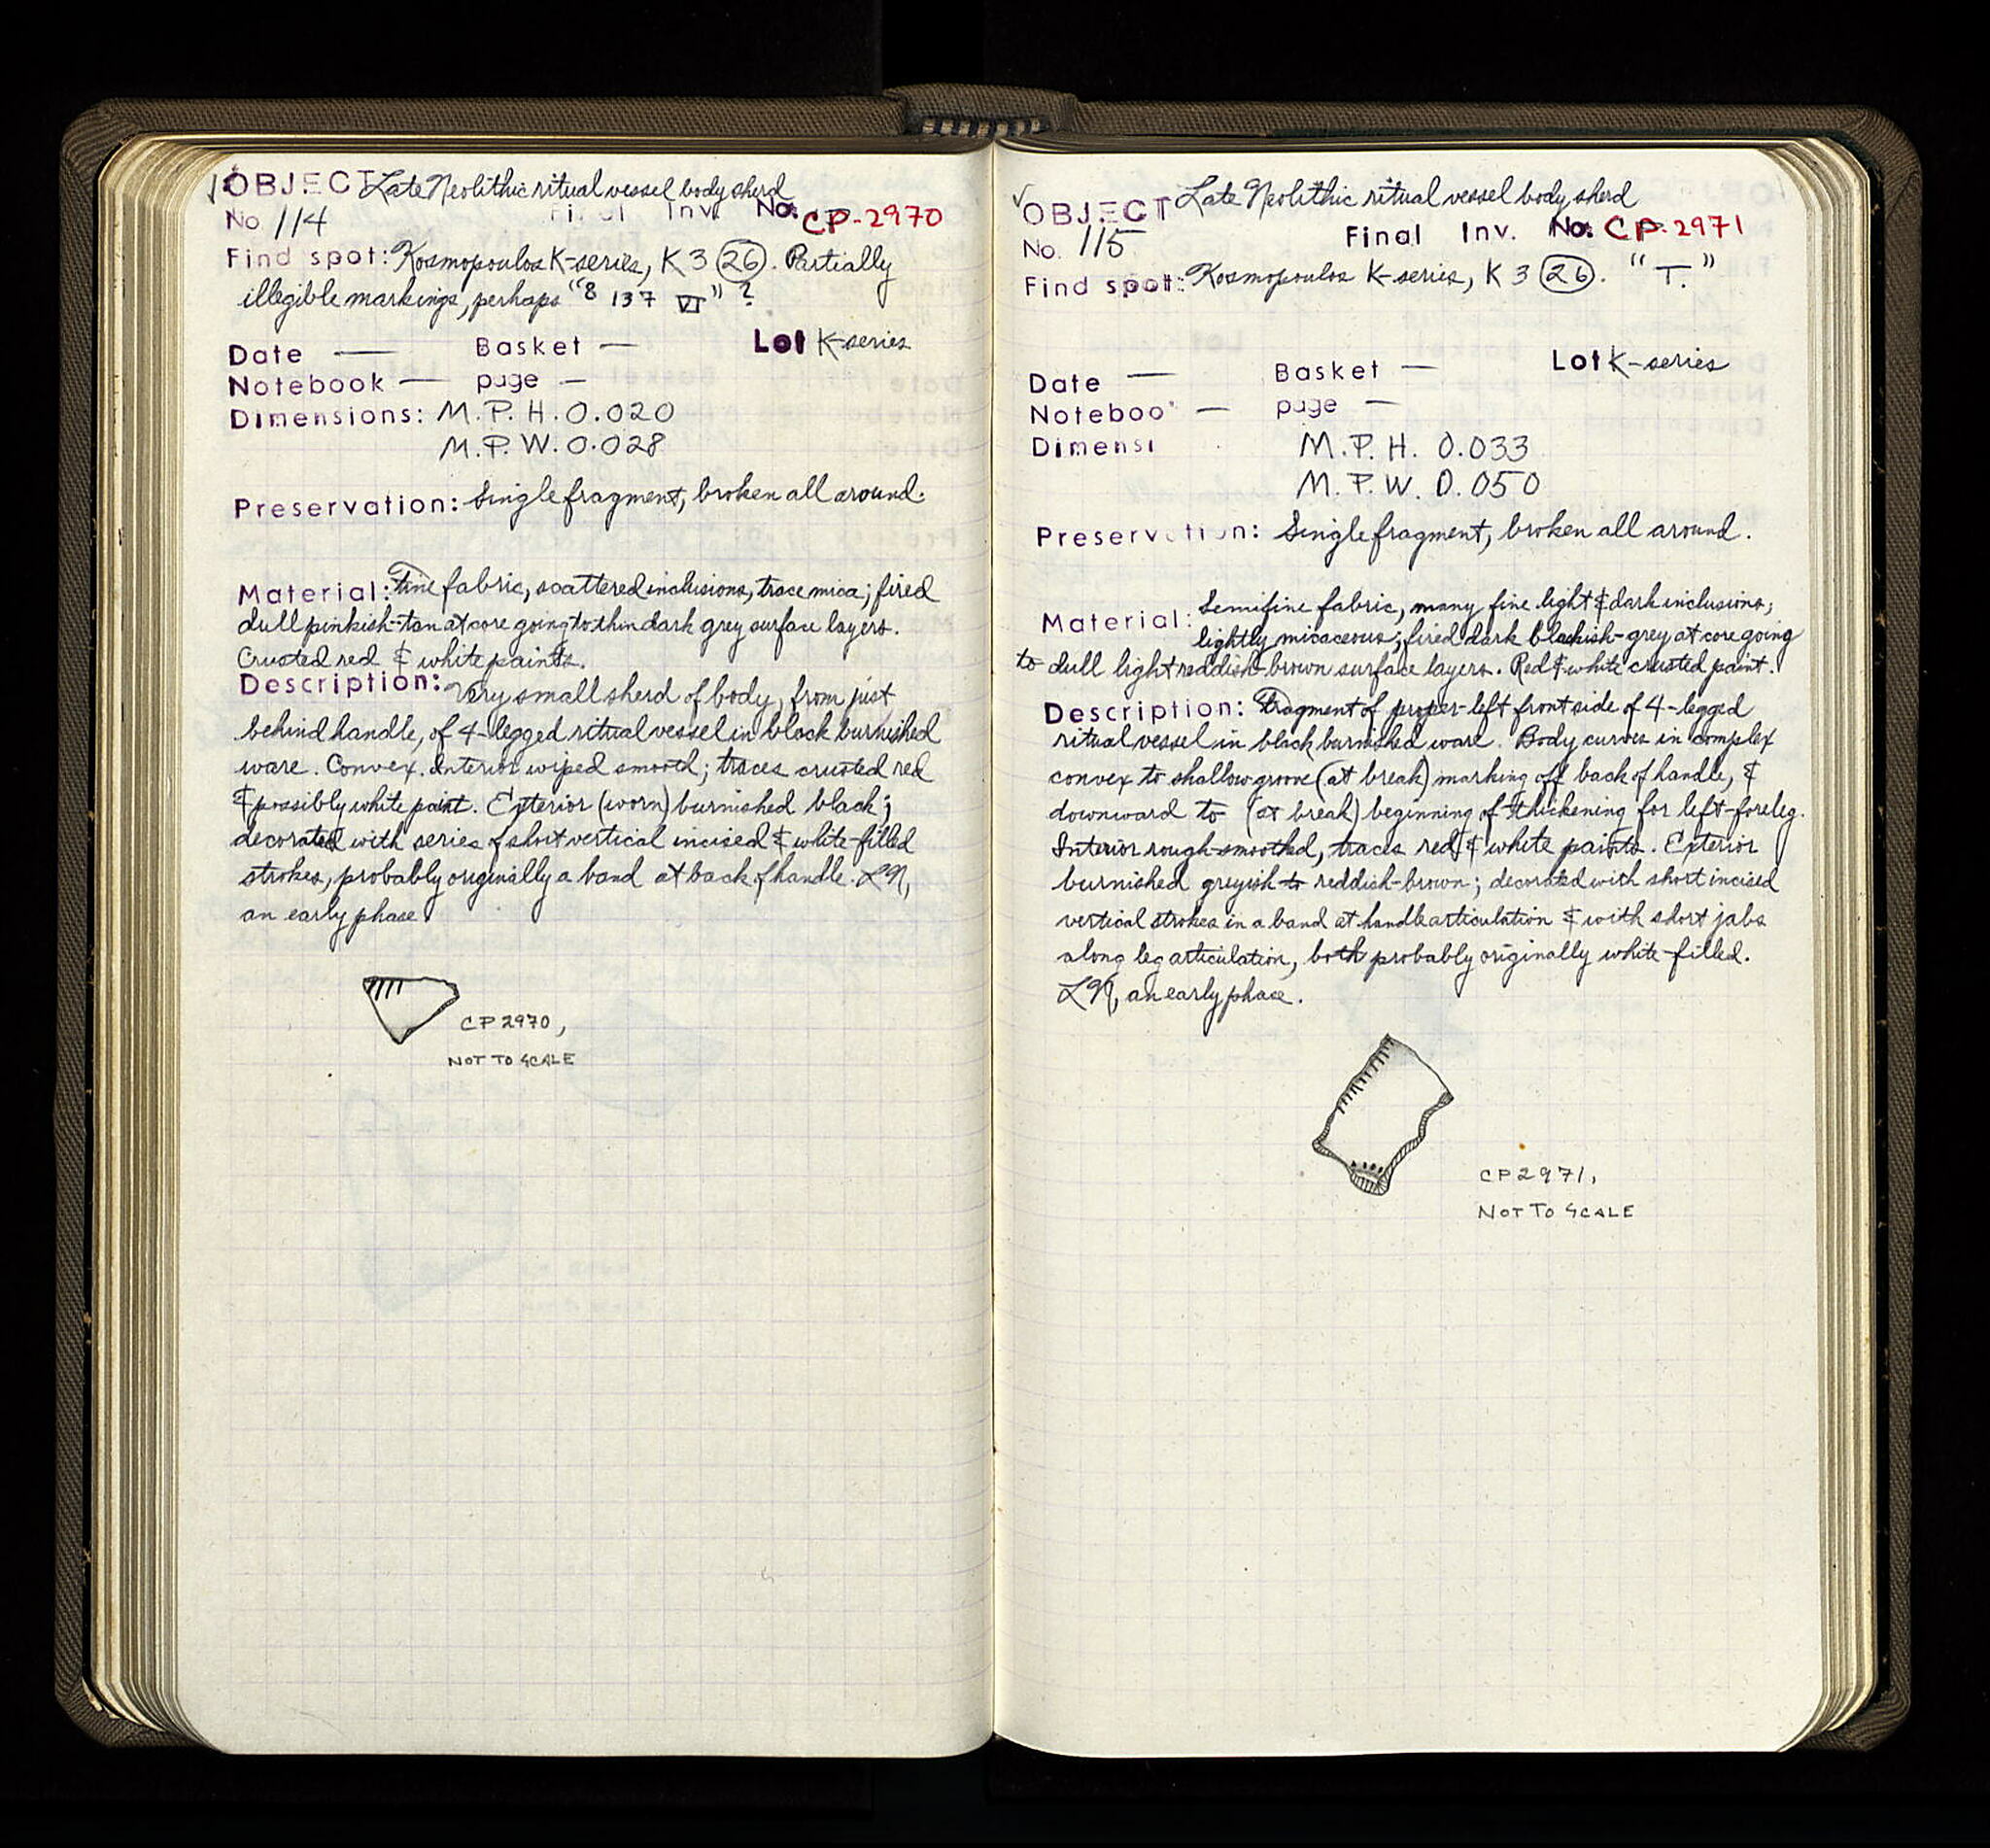 ✓ OBJECT Late Neolithic ritual vessel body sherd
No 114 Final Inv. No. CP-2970
Find spot: Kosmopoulos K-series, K 3 (26). Partially
illegible markings, perhaps "8 137 VI" ?
Date — Basket — Lot K-series
Notebook — page —
Dimensions: M.P.H. 0.020
M.P.W. 0.028
Preservation: Single fragment, broken all around.
Material: Fine fabric, scattered inclusions, trace mica; fired
dull pinkish-tan at core going to thin dark grey surface layers.
Crusted red & white paints.
Description: Very small sherd of body, from just
behind handle, of 4-legged ritual vessel in black burnished
ware. Convex. Interior wiped smooth; traces crusted red
& possibly white paint. Exterior (worn) burnished black;
decorated with series of short vertical incised & white-filled
strokes, probably originally a band at back of handle. LN,
an early phase.
CP 2970,
NOT TO SCALE
✓ OBJECT Late Neolithic ritual vessel body sherd
No. 115 Final Inv. No. CP-2971
Find spot: Kosmopoulos K-series, K 3 (26). "T."
Date — Basket — Lot K-series
Noteboo — page —
Dimensi M.P.H. 0.033
M.P.W. 0.050
Preservation: Single fragment, broken all around.
Material: Semifine fabric, many fine light & dark inclusions;
lightly micaceous; fired dark blackish-grey at core going
to dull light reddish-brown surface layers. Red & white crusted paint.
Description: Fragment of proper-left front side of 4-legged
ritual vessel in black burnished ware. Body curves in complex
convex to shallow groove (at break) marking off back of handle, &
downward to (at break) beginning of thickening for left-foreleg.
Interior rough-smoothed, traces red & white paints. Exterior
burnished greyish to reddish-brown; decorated with short incised
vertical strokes in a band at handle articulation & with short jabs
along leg articulation, both probably originally white-filled.
LN, an early phase.
CP 2971,
NOT TO SCALE